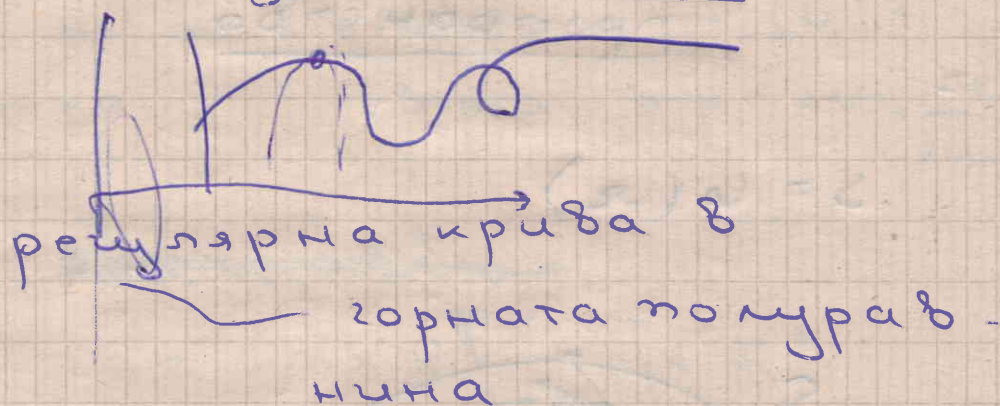 регулярна крива в
горната полурав-
нина